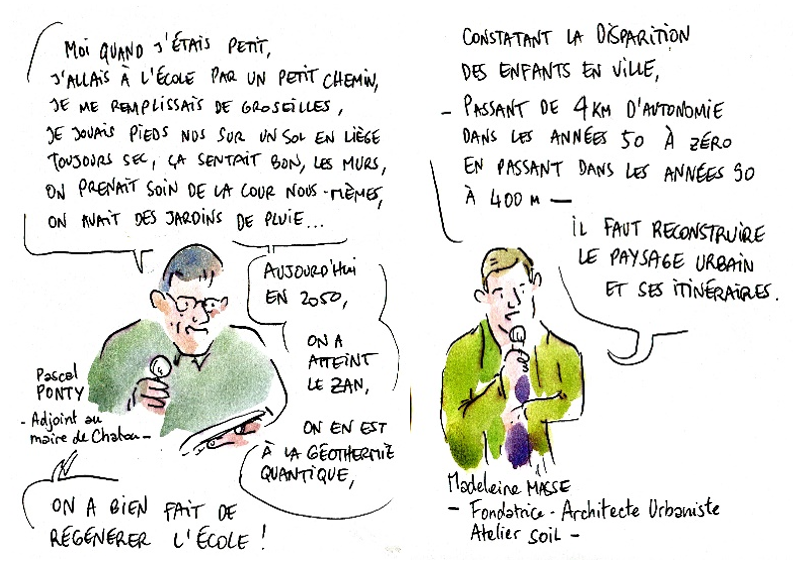 MOI QUAND J'ÉTAIS PETIT,
J'ALLAIS À L'ÉCOLE PAR UN PETIT CHEMIN,
JE ME REMPLISSAIS DE GROSEILLES,
JE JOUAIS PIEDS NUS SUR UN SOL EN LIÈGE
TOUJOURS SEC, ÇA SENTAIT BON, LES MURS,
ON PRENAIT SOIN DE LA COUR NOUS-MÊMES,
ON AVAIT DES JARDINS DE PLUIE...
AUJOURD'HUI
EN 2050,
ON A
ATTEINT
LE ZAN,
ON EN EST
À LA GÉOTHERMIE
QUANTIQUE,
Pascal
PONTY
- Adjoint au
maire de Chatou -
ON A BIEN FAIT DE
RÉGÉNÉRER L'ÉCOLE !
CONSTATANT LA DISPARITION
DES ENFANTS EN VILLE,
- PASSANT DE 4 KM D'AUTONOMIE
DANS LES ANNÉES 50 À ZÉRO
EN PASSANT DANS LES ANNÉES 90
À 400 M -
IL FAUT RECONSTRUIRE
LE PAYSAGE URBAIN
ET SES ITINÉRAIRES.
Madeleine MASSE
- Fondatrice - Architecte Urbaniste
Atelier SOIL -